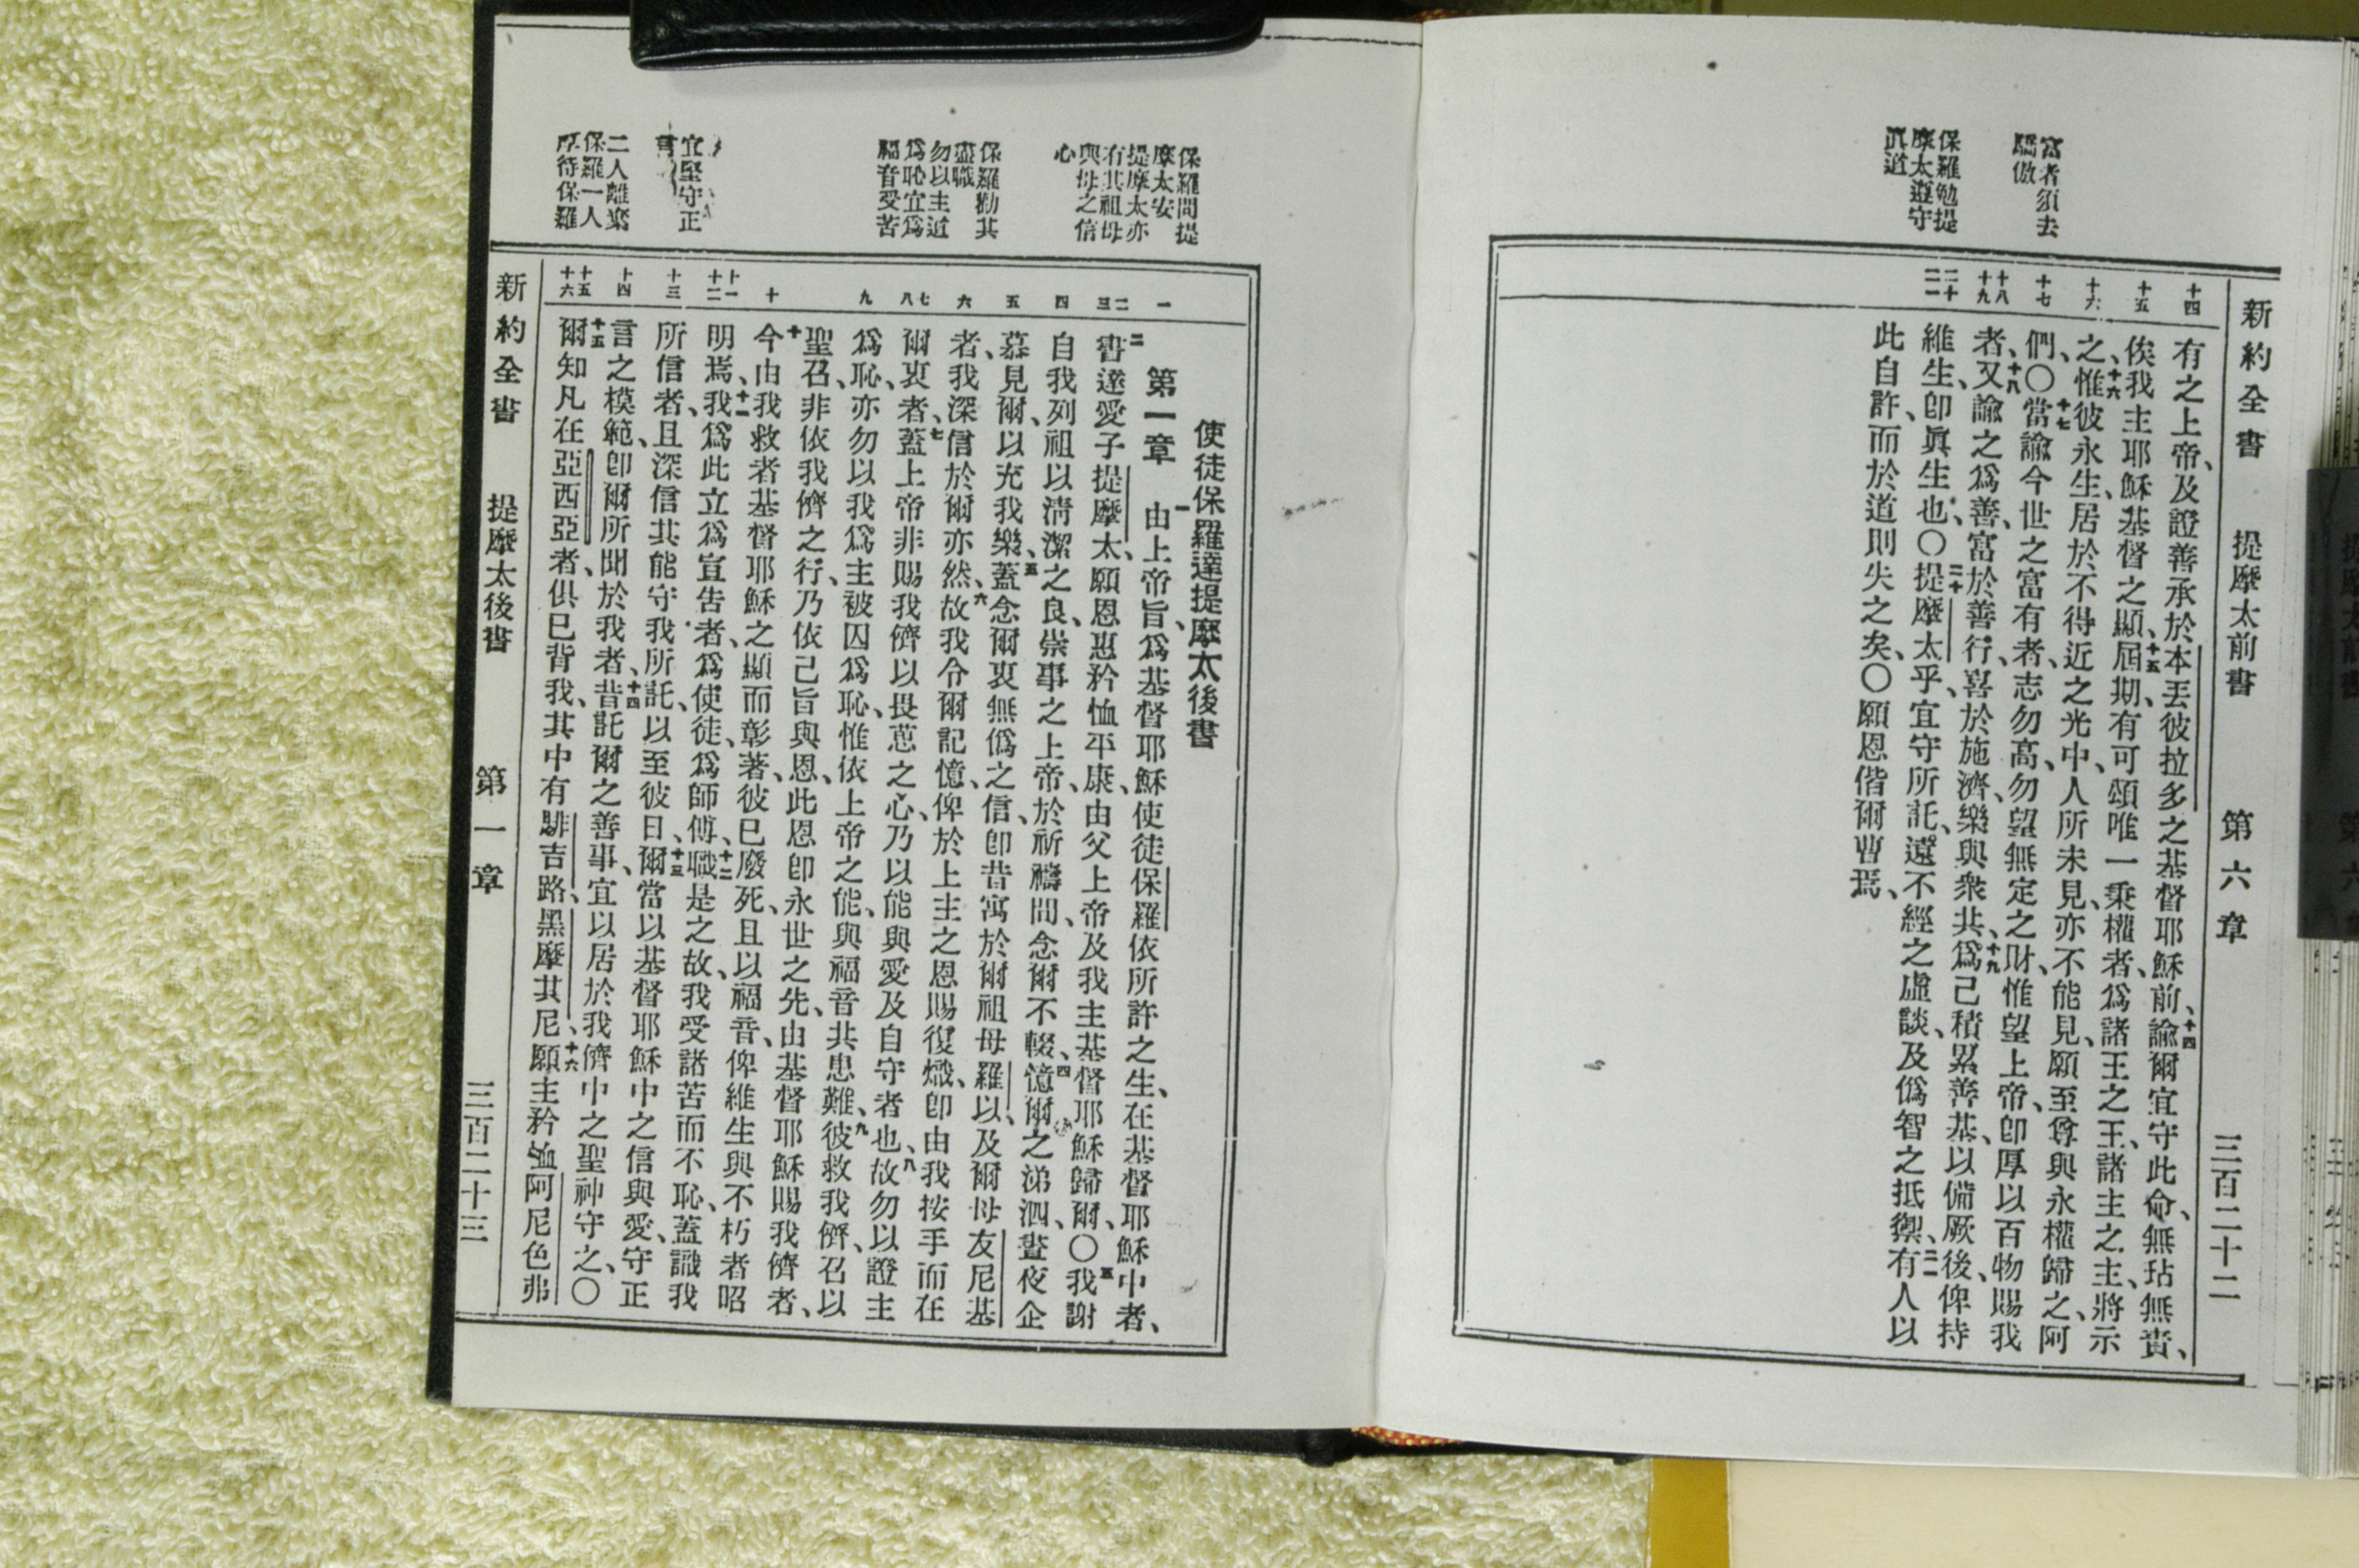 新約全書 提摩太前書 第六章 三百二十二
富者須去
驕傲
保羅勉提
摩太遵守
眞道
十四
十五
十六
十七
十八
十九
二十
二一
有之上帝、及證善承於本丟彼拉多之基督耶穌前、十四諭爾宜守此命、無玷無責、
俟我主耶穌基督之顯、十五屆期、有可頌唯一秉權者、爲諸王之王、諸主之主、將示
之、十六惟彼永生、居於不得近之光中、人所未見、亦不能見、願至尊與永權歸之、阿
們、〇十七當諭今世之富有者、志勿高、勿望無定之財、惟望上帝、卽厚以百物賜我
者、十八又諭之爲善、富於善行、喜於施濟、樂與衆共、十九爲己積累善基、以備厥後、俾持
維生、卽眞生也、〇二十提摩太乎、宜守所託、遠不經之虛談、及僞智之抵禦、二一有人以
此自許、而於道則失之矣、〇願恩偕爾曹焉、
保羅問提
摩太安
提摩太亦
有其祖母
與母之信
心
保羅勸其
盡職
勿以主道
爲恥宜爲
福音受苦
宜堅守正
言
二人離棄
保羅一人
厚待保羅
一
二
三
四
五
六
七
八
九
十
十一
十二
十三
十四
十五
十六
使徒保羅達提摩太後書
第一章 一由上帝旨、爲基督耶穌使徒保羅依所許之生、在基督耶穌中者、
二書達愛子提摩太、願恩惠矜恤平康、由父上帝及我主基督耶穌歸爾、〇三我謝
自我列祖以淸潔之良、崇事之上帝、於祈禱間、念爾不輟、四憶爾之涕泗、晝夜企
慕見爾、以充我樂、五蓋念爾衷無僞之信、卽昔寓於爾祖母羅以、及爾母友尼基
者、我深信於爾亦然、六故我令爾記憶、俾於上主之恩賜復熾、卽由我按手而在
爾衷者、七蓋上帝非賜我儕以畏葸之心、乃以能與愛及自守者也、八故勿以證主
爲恥、亦勿以我爲主被囚爲恥、惟依上帝之能、與福音共患難、九彼救我儕、召以
聖召、非依我儕之行、乃依己旨與恩、此恩卽永世之先、由基督耶穌賜我儕者、
十今由我救者基督耶穌之顯而彰著、彼已廢死、且以福音、俾維生與不朽者昭
明焉、十一我爲此立爲宣吿者、爲使徒、爲師傅、十二職是之故、我受諸苦而不恥、蓋識我
所信者、且深信其能守我所託、以至彼日、十三爾當以基督耶穌中之信與愛、守正
言之模範、卽爾所聞於我者、十四昔託爾之善事、宜以居於我儕中之聖神守之、〇
十五爾知凡在亞西亞者、俱已背我、其中有腓吉路、黑摩其尼、十六願主矜恤阿尼色弗
新約全書 提摩太後書 第一章 三百二十三